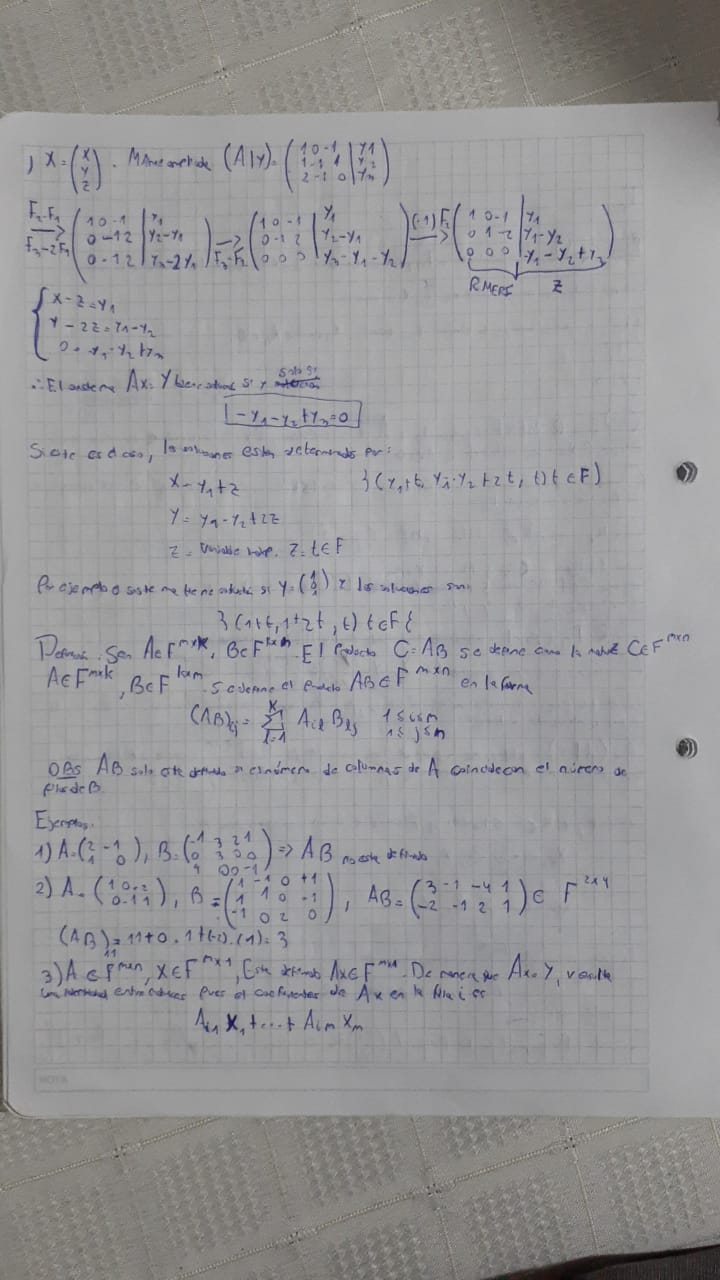 ) X = (x y z). Matriz ampliada (A|Y) = (1 0 -1 | y1
1 -1 1 | y2
2 -1 0 | y3)
F2-F1
F3-2F1 → (1 0 -1 | y1
0 -1 2 | y2-y1
0 -1 2 | y3-2y1) F3-F2 → (1 0 -1 | y1
0 -1 2 | y2-y1
0 0 0 | y3-y1-y2) (-1)F2 → (1 0 -1 | y1
0 1 -2 | y1-y2
0 0 0 | -y1-y2+y3)
RMERF Z
{ x-z=y1
y-2z=y1-y2
0=-y1-y2+y3
∴ El sistema AX=Y tiene solución si y solo si
-y1-y2+y3=0
Si este es el caso, las soluciones están determinadas por:
x=y1+z }(y1+t, y1-y2+2t, t) t∈F}
y=y1-y2+2z
z=variable indep. z=t∈F
Por ejemplo el sistema tiene solución si y=(1 0 1) y las soluciones son:
}(1+t, 1+2t, t) t∈F{
Definición. Sean A∈F^mxk, B∈F^kxn. El producto C=AB se define como la matriz C∈F^mxn
A∈F^mxk, B∈F^kxn. Se define el producto AB∈F^mxn en la forma
(AB)ij = Σ^k l=1 Ail Blj 1≤i≤m
1≤j≤n
OBS AB solo está definido si el número de columnas de A coincide con el número de
filas de B
Ejemplos.
1) A=(2 -1
1 0), B=(-1 3 2 1
0 3 0 0
4 0 0 -1) => AB no está definido
2) A=(1 0 -2
0 -1 1), B=(1 -1 0 +1
1 1 0 -1
-1 0 2 0), AB=(3 -1 -4 1
-2 -1 2 1)∈ F^2x4
(AB)11=1.1+0.1+(-2).(-1)=3
3) A∈F^mxn, X∈F^mx1, Está definido AX∈F^mx1. De manera que AX=Y, resulta
una identidad entre matrices pues el coeficientes de AX en la fila i es
Ai1 X1+...+ Aim Xm
NOTA